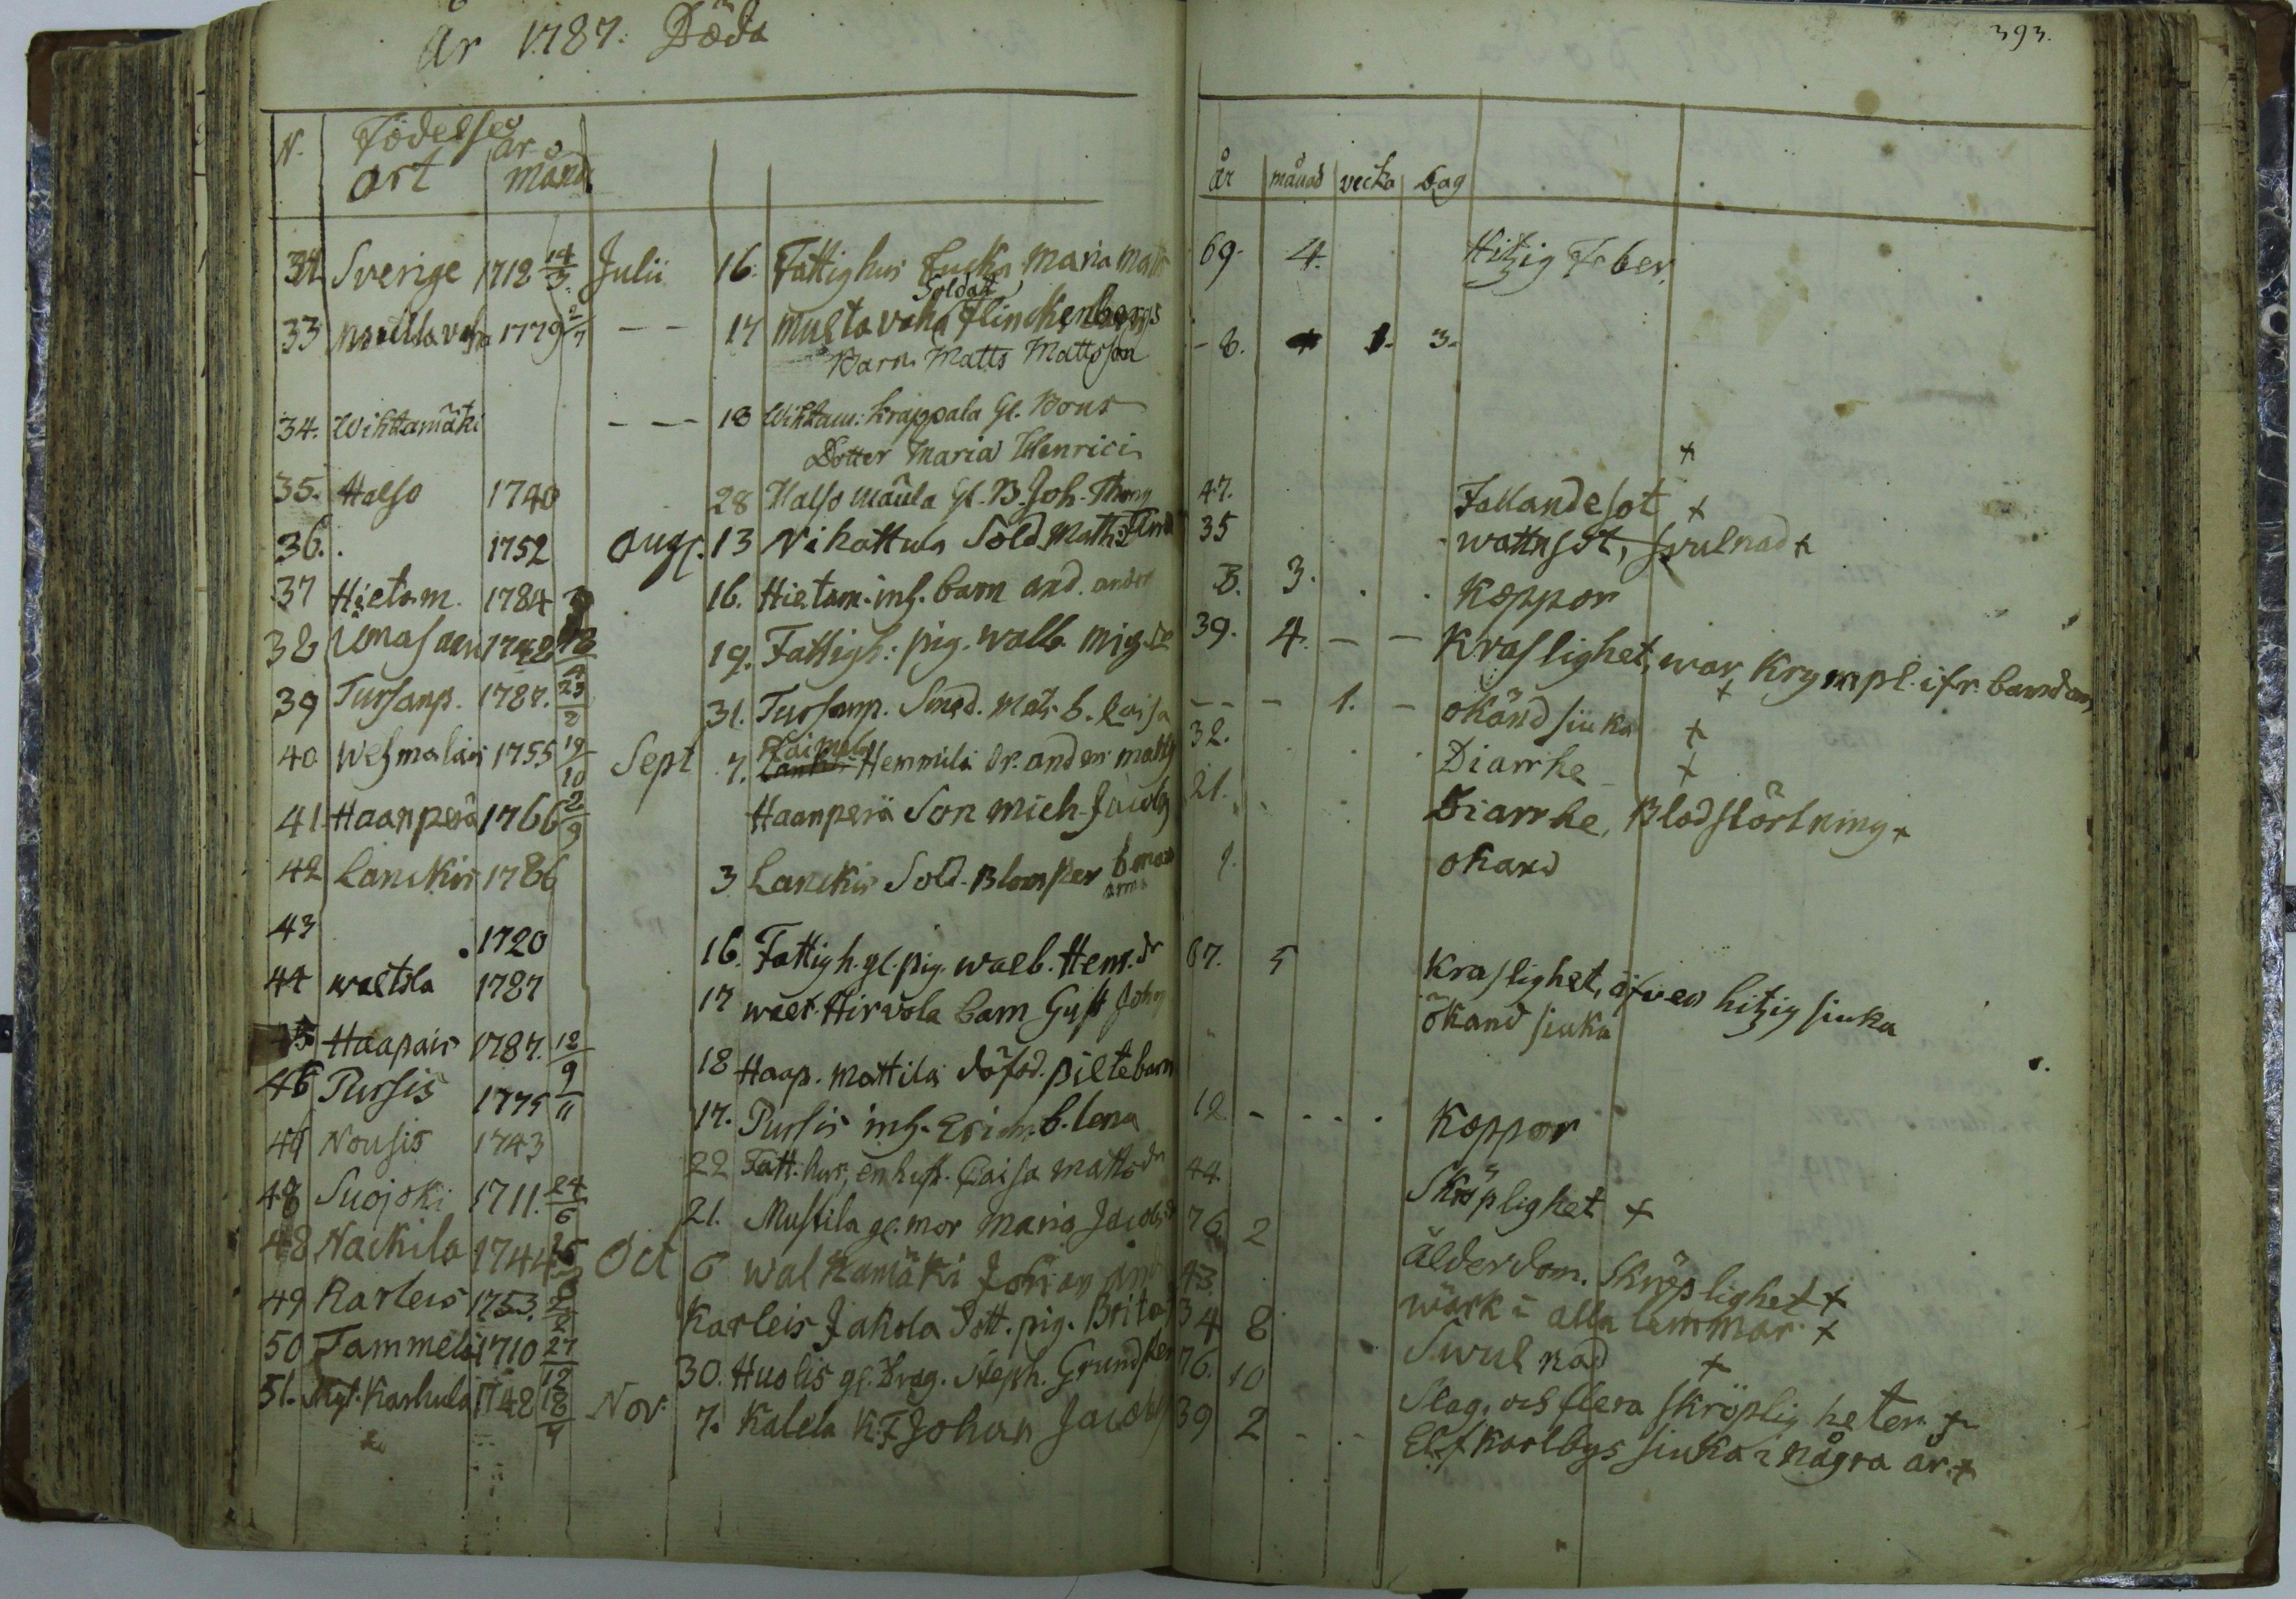 År 1787. Döda
393.
N. Födelse
ort år månd
år månad vecka dag
Sverige 1718 14/3 Julii 16. Fattighus Maria 69. 4. Hitzig Feber
Soldat
33 1779 2/7 - - 17 Multavaha Flinckenbergs
Barn Matts Mattsson - 8. 1. 3.
34. Wihttamäki - - - 18 Krappala Gl. Bons
Dotter Maria Henrici +
35. Halso 1740 28 Halso Gl. B. Joh. 47. Fallandesot +
36. . 1752 Aug. 13 Sold. Math. 35 wattusot, svulnad +
37 Hietam. 1784 16. Hietam. inh. barn and. 3. 3. . . Koppor
38 19. Fattigh. pig. walb. Mig. dr 39. 4. - - Kraslighet, war Krympl. ifr. barndom
39 Tursanp. 1787. 23/2 31. Tursanp. Smed. Mats b. Caisa - - - 1. - okänd siuka +
40 1755 19/10 Sept 7. Hemmila Dr. anders matts 32. Diarrhe +
41. Haanperä 1766 2/9 Haanperä Son Mich. Jacobs 21. Diarrhe, Blodstörtning +
42 Lanckis 1786 3 Lanckis Sold. b. 1. okänd
43 . 1720 16. Fattigh. gl. pig. walb. Hem. dr 67. 5 Kraslighet, äfven hitzig siuka
44 waltola 1787 17 Hirvola barn Gust Johs okänd siuka
45 Haapais 1787. 12/9 18 Haap. Mattila döföd. piltebarn
46 Pursis 1775 1/11 17. Pursis inh. b. lena 12 - - . . Koppor
Nousis 1743 22 Fatt. hus, Caisa Matts dr 44. Skröplighet +
48 Suojoki 1711. 24/6 21. Mustila gl. mor Maria Jacobs dr 76 2 ålderdom. Skröplighet +
48 Nackila 1744 Oct 6 Walkamäki Johan 43. wärk i alla lemmar +
49 Karleis 1753. Karleis Jakola Dott. pig. Brita 34 8 Swulnad +
50 Tammela 1710 27/12 30. Huolis gl. Drag. Steph. Grundsten 76. 10 Slag. och flera skröpligheter +
51. Karhula 1748 18/9 Nov. 7. Kalela Johan Jacobs 39 2 - . - Elfkarlbys siuka i några år. +